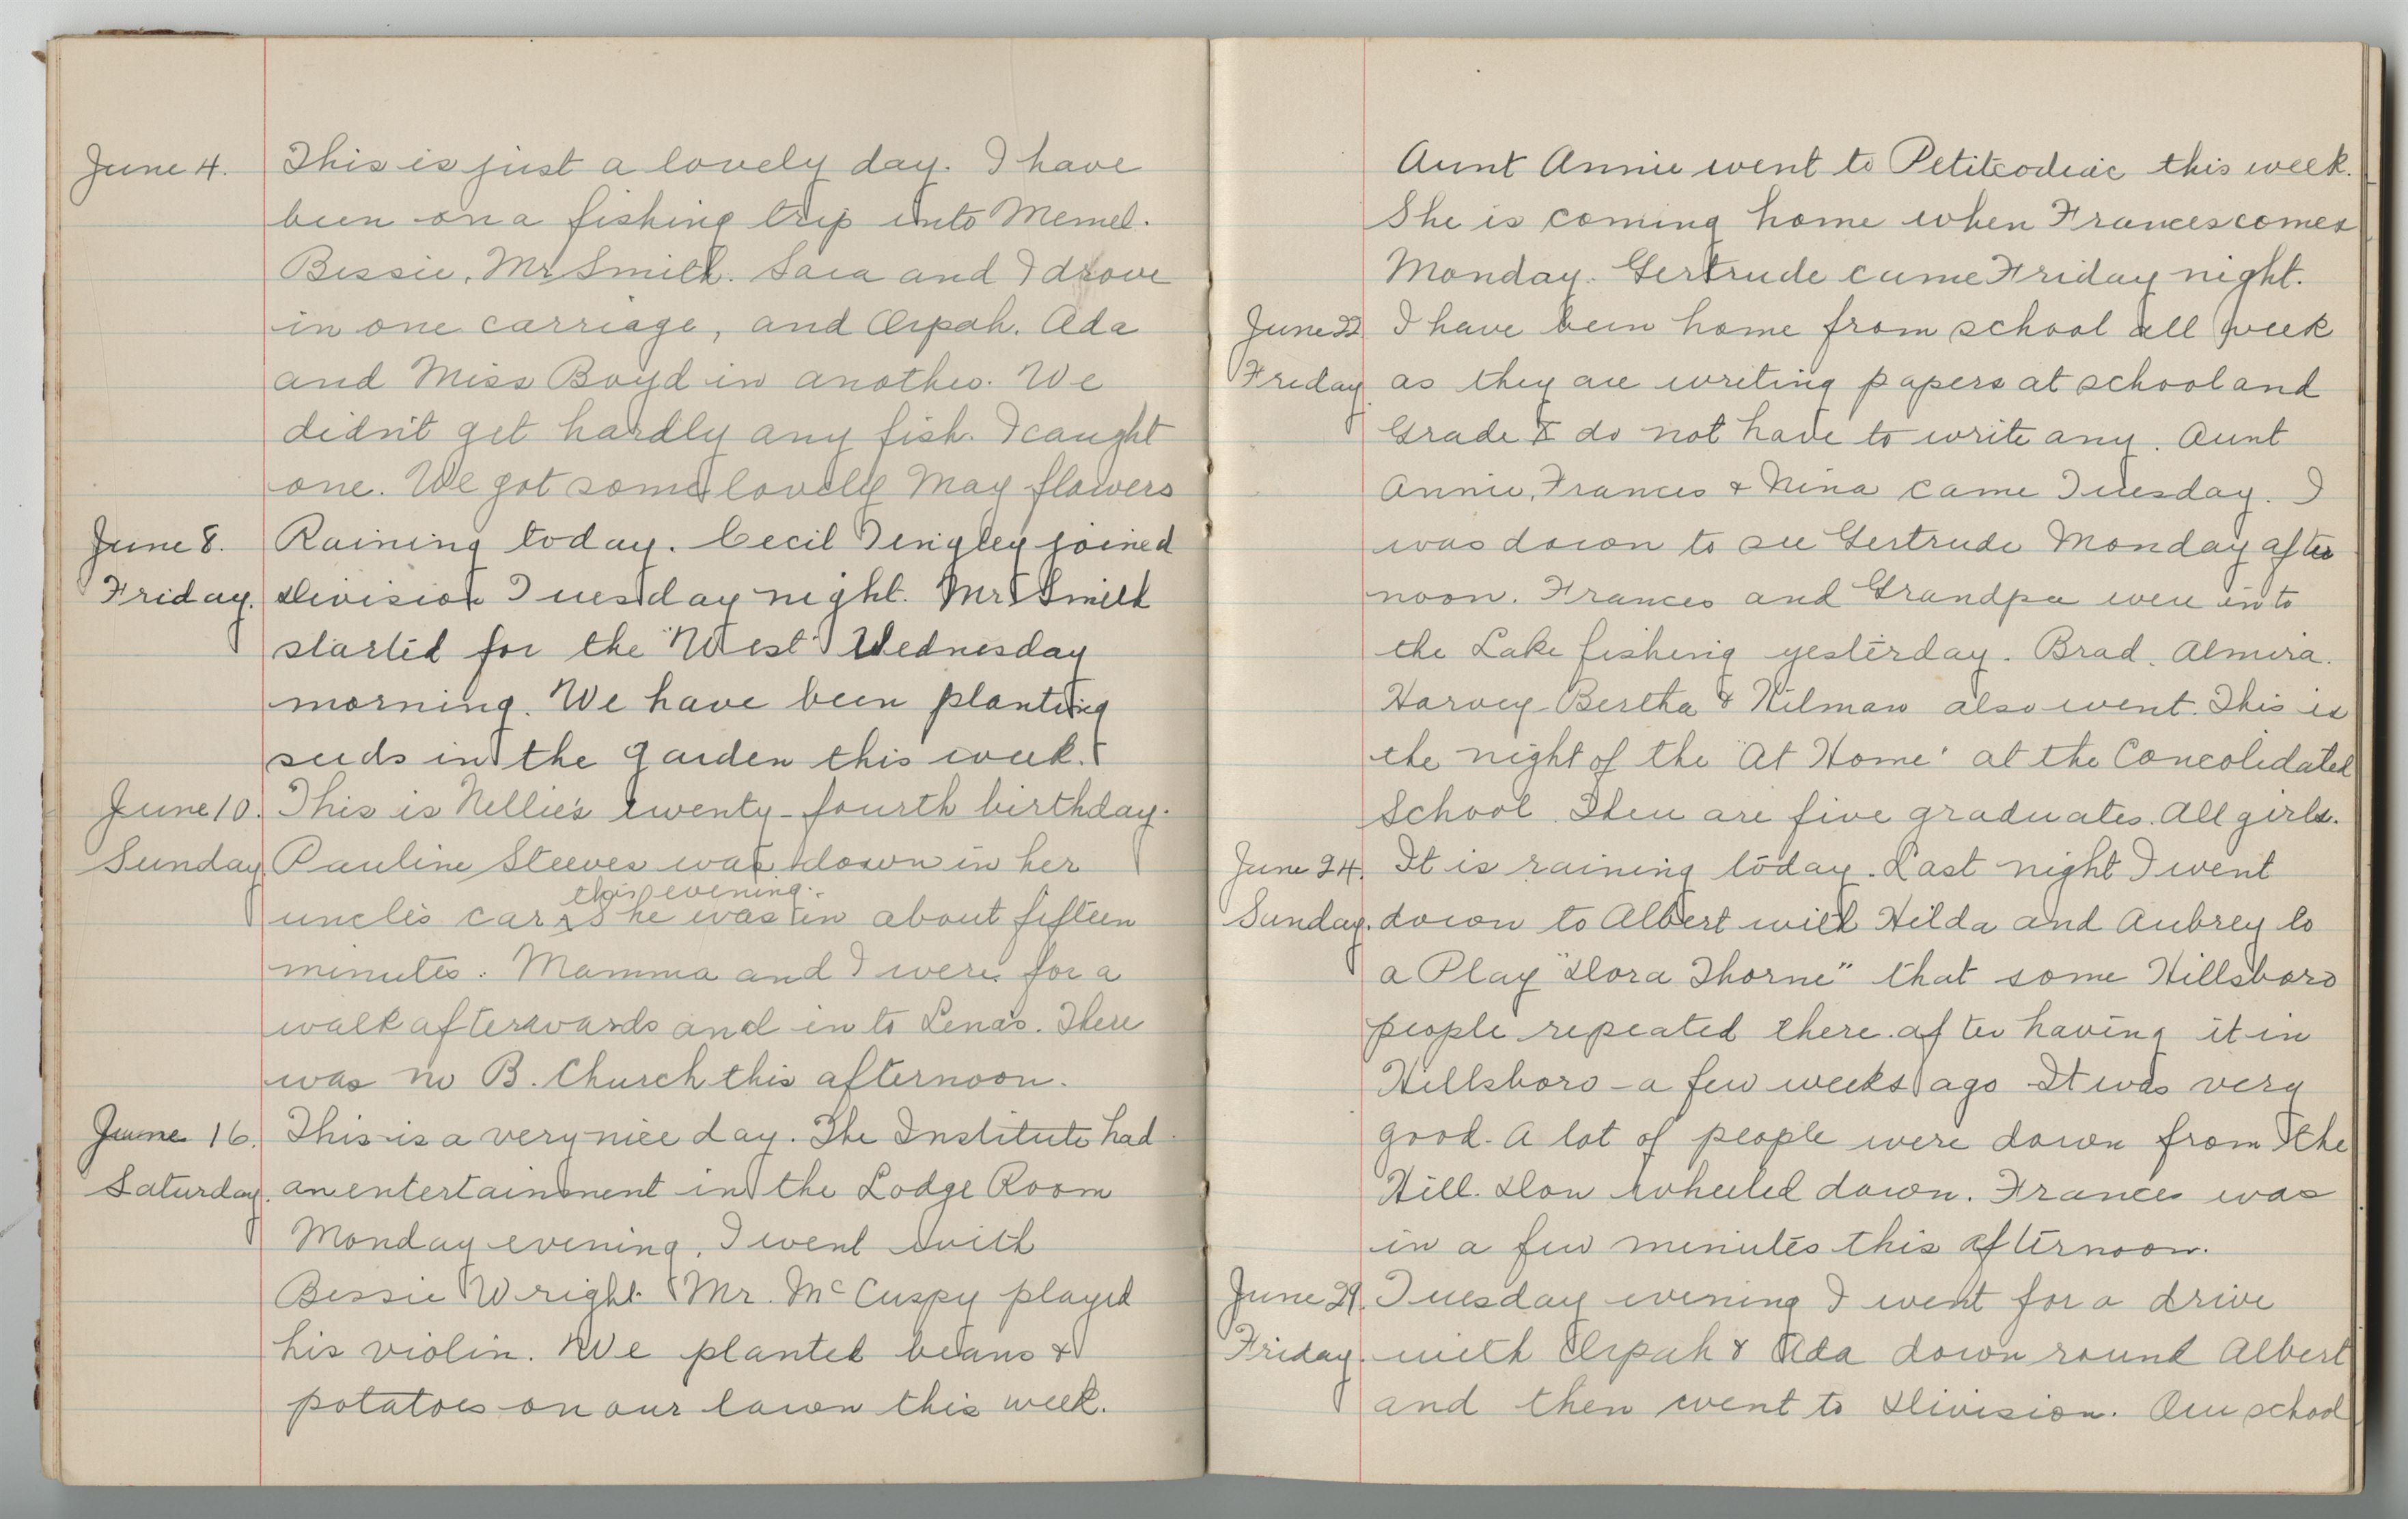 June 4. This is just a lovely day. I have
been on a fishing trip into Memel.
Bessie, Mr Smith. Sara and I drove
in one carriage, and Orpah. Ada
and Miss Boyd in another. We
didn't get hardly any fish. I caught
one. We got some lovely May flowers
June 8. Raining today. Cecil Tingley joined
Friday. Division Tuesday night. Mr Smith
started for the "West" Wednesday
morning. We have been planting
seeds in the garden this week.
June 10. This is Nellie's twenty-fourth birthday.
Sunday Pauline Steeves was down in her
this evening.
uncle's car. She was in about fifteen
minutes. Mamma and I were for a
walk afterwards and in to Lena's. There
was no B. Church this afternoon.
June 16. This is a very nice day. The Institute had
Saturday. an entertainment in the Lodge Room
Monday evening. I went with
Bessie Wright. Mr. McCuspy played
his violin. We planted beans &
potatoes on our lawn this week.
Aunt Annie went to Petitcodiac this week.
She is coming home when Frances comes
Monday. Gertrude came Friday night.
June 22 I have been home from school all week
Friday as they are writing papers at school and
Grade X do not have to write any. Aunt
Annie, Frances & Nina came Tuesday. I
was down to see Gertrude Monday after
noon. Frances and Grandpa were in to
the Lake fishing yesterday. Brad, Almira.
Harvey Bertha & Hilman also went. This is
the night of the "At Home" at the Consolidated
School. There are five graduates. All girls.
June 24. It is raining today. Last night I went
Sunday. down to Albert with Hilda and Aubrey to
a Play "Dora Thorne" that some Hillsboro
people repeated there after having it in
Hillsboro - a few weeks ago It was very
good. A lot of people were down from the
Hill. Don wheeled down. Frances was
in a few minutes this afternoon.
June 29. Tuesday evening I went for a drive
Friday. with Orpah & Ada down round Albert
and then went to Division. Our school